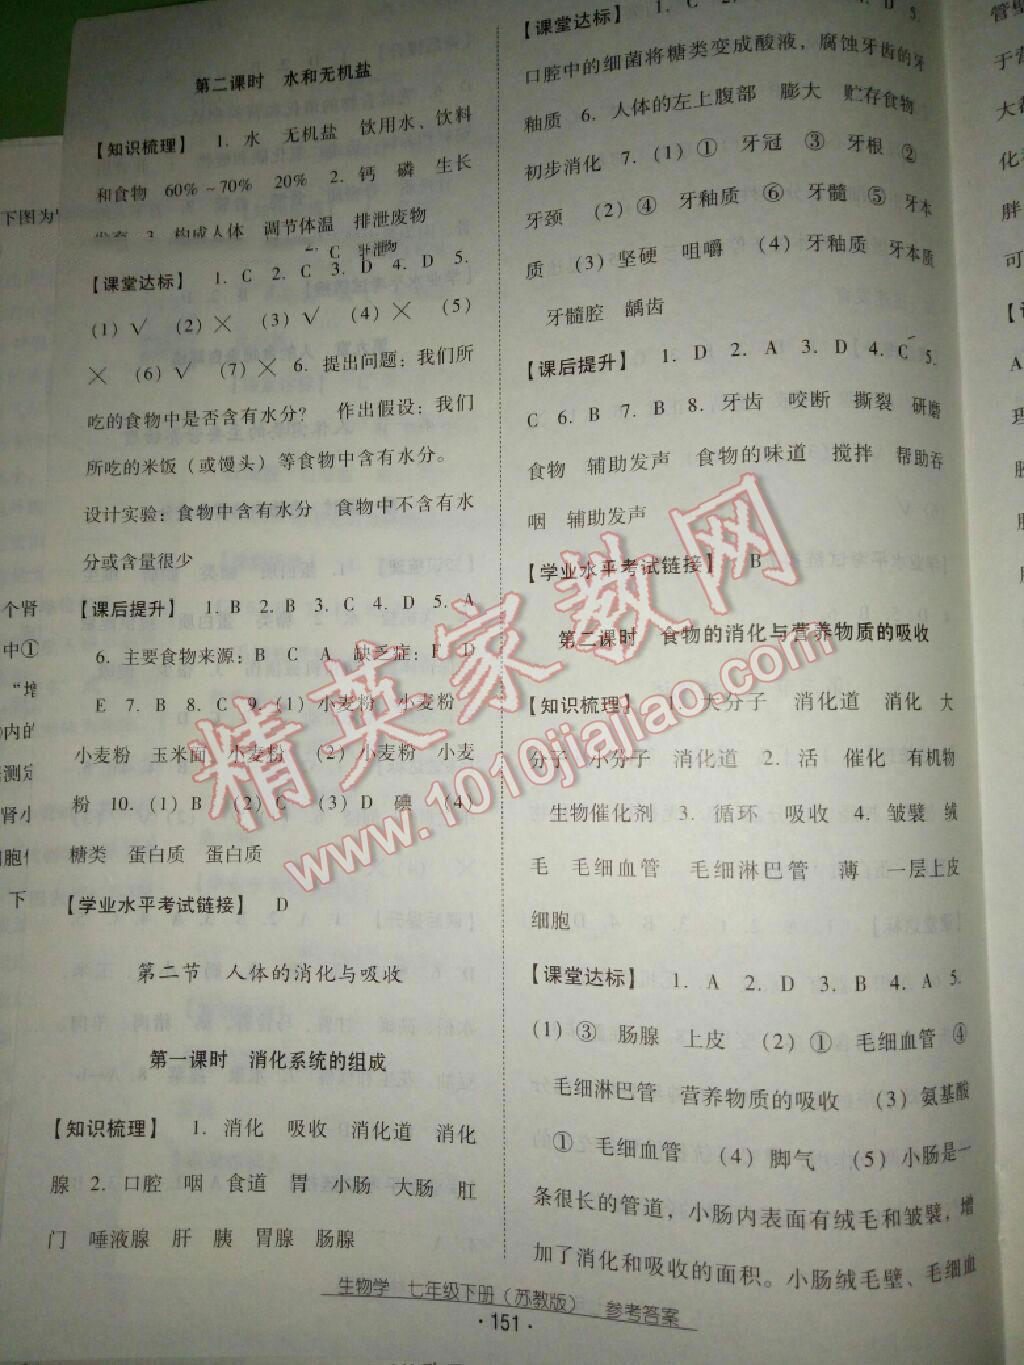 第二课时 水和无机盐
【知识梳理】 1. 水 无机盐 饮用水、饮料
和食物 60%~70% 20% 2. 钙 磷 生长
发育 3. 构成人体 调节体温 排泄废物
【课堂达标】 1. C 2. C 3. D 4. D 5.
(1) √ (2) × (3) √ (4) × (5)
× (6) √ (7) × 6. 提出问题：我们所
吃的食物中是否含有水分? 作出假设：我们
所吃的米饭（或馒头）等食物中含有水分。
设计实验：食物中含有水分 食物中不含有水
分或含量很少
【课后提升】 1. B 2. B 3. C 4. D 5. A
6. 主要食物来源：B C A 缺乏症：F D
E 7. B 8. C 9. (1) 小麦粉 小麦粉
小麦粉 玉米面 小麦粉 (2) 小麦粉 小麦
粉 10. (1) B (2) C (3) D 碘 (4)
糖类 蛋白质 蛋白质
【学业水平考试链接】 D
第二节 人体的消化与吸收
第一课时 消化系统的组成
【知识梳理】 1. 消化 吸收 消化道 消化
腺 2. 口腔 咽 食道 胃 小肠 大肠 肛
门 唾液腺 肝 胰 胃腺 肠腺
【课堂达标】 1. C 2. 4. D 5.
口腔中的细菌将糖类变成酸液，腐蚀牙齿的牙
釉质 6. 人体的左上腹部 膨大 贮存食物
初步消化 7. (1) ① 牙冠 ③ 牙根 ②
牙颈 (2) ④ 牙釉质 ⑥ 牙髓 ⑤ 牙本
质 (3) 坚硬 咀嚼 (4) 牙釉质 牙本质
牙髓腔 龋齿
【课后提升】 1. D 2. A 3. D 4. C 5.
C 6. B 7. B 8. 牙齿 咬断 撕裂 研磨
食物 辅助发声 食物的味道 搅拌 帮助吞
咽 辅助发声
【学业水平考试链接】 B
第二课时 食物的消化与营养物质的吸收
【知识梳理】 1. 大分子 消化道 消化 大
分子 小分子 消化道 2. 活 催化 有机物
生物催化剂 3. 循环 吸收 4. 皱襞 绒
毛 毛细血管 毛细淋巴管 薄 一层上皮
细胞
【课堂达标】 1. A 2. D 3. B 4. A 5.
(1) ③ 肠腺 上皮 (2) ① 毛细血管 ④
毛细淋巴管 营养物质的吸收 (3) 氨基酸
① 毛细血管 (4) 脚气 (5) 小肠是一
条很长的管道，小肠内表面有绒毛和皱襞，增
加了消化和吸收的面积。小肠绒毛壁、毛细血
生物学 七年级下册（苏教版） 参考答案
· 151 ·
精英家教网
www.1010jiajiao.com